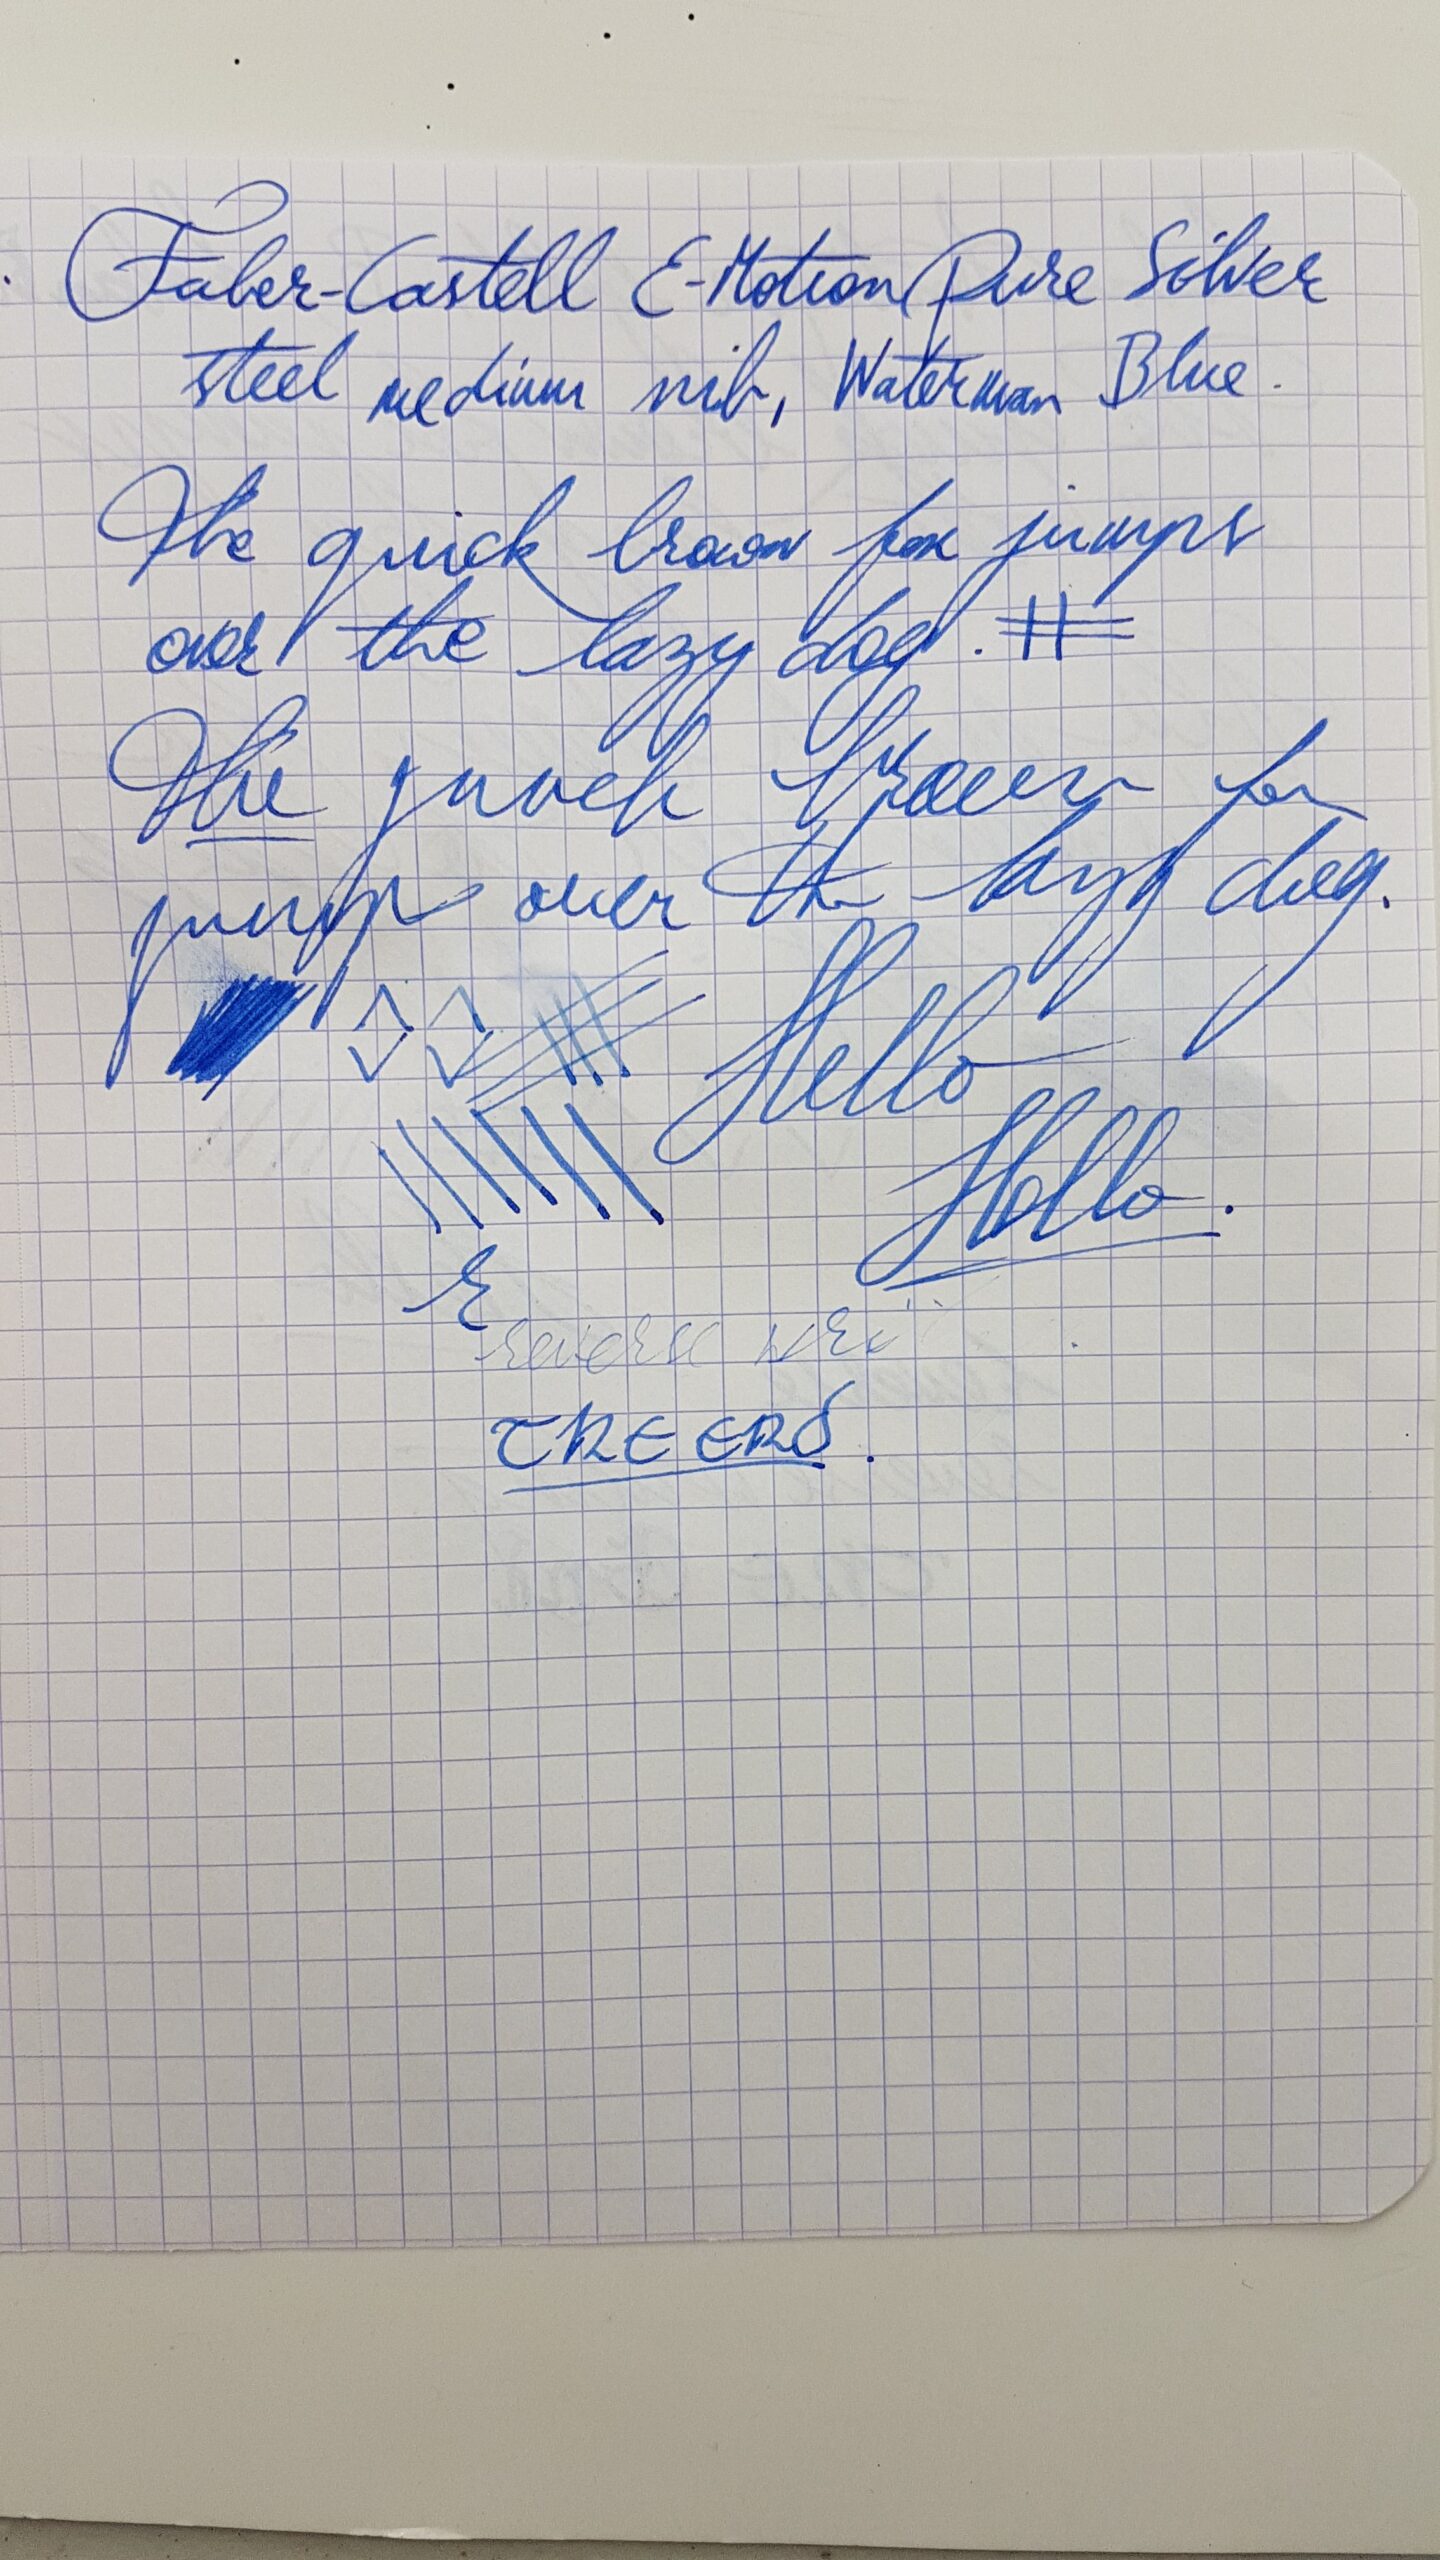 Faber-Castell E-Motion Pure Silver
steel medium nib, Waterman Blue.
The quick brown fox jumps
over the lazy dog.
The quick brown fox
jumps over the lazy dog.
Hello
Hello.
reverse wri